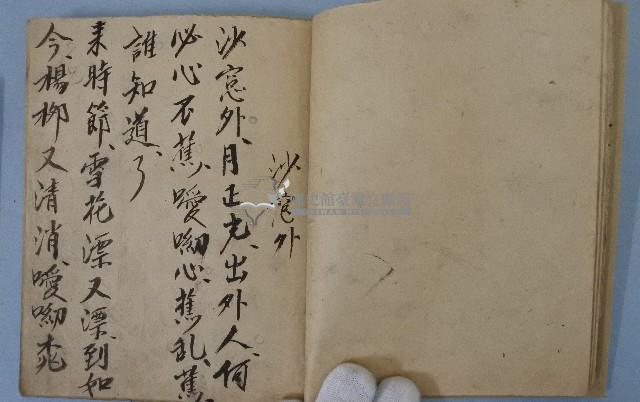 沙窓外
沙窓外、月正光、出外人、何
必心不蕉、噯呦心蕉乱、蕉
誰知道、了
来時節、雪花漂又漂、到如
今、楊柳又清消、噯呦